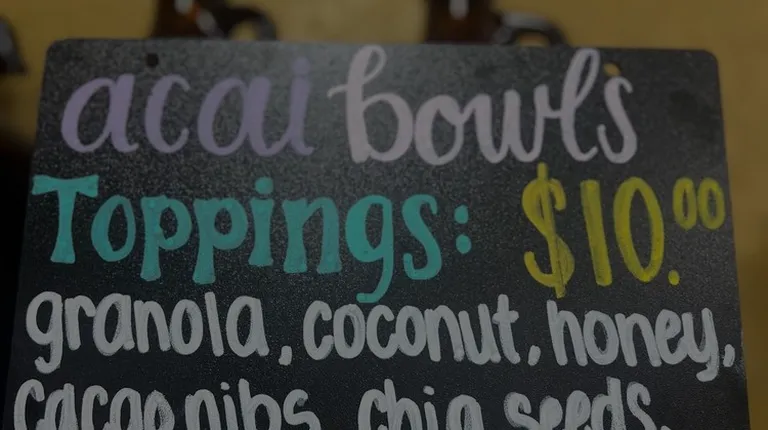 acai bowls
Toppings: $10.00
granola, coconut, honey,
cacao nibs, chia seeds,